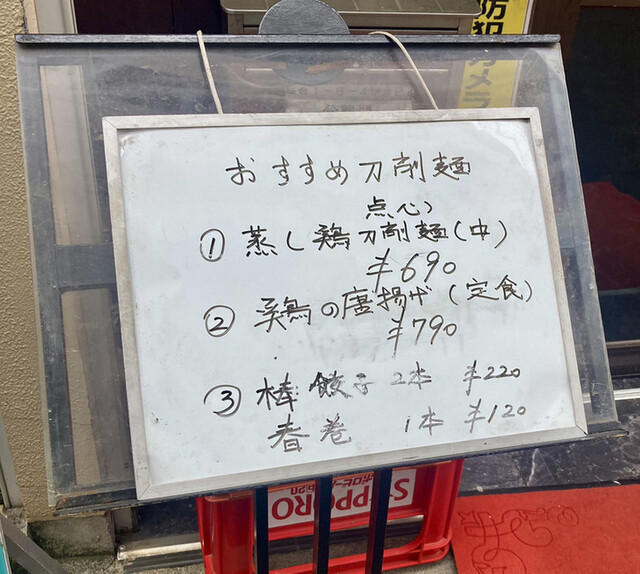 防犯カメラ
おすすめ刀削麺
点心
① 蒸し鶏刀削麺(中)
¥690
② 鶏の唐揚げ(定食)
¥790
③ 棒餃子 2本 ¥220
春巻 1本 ¥120
SAPPORO